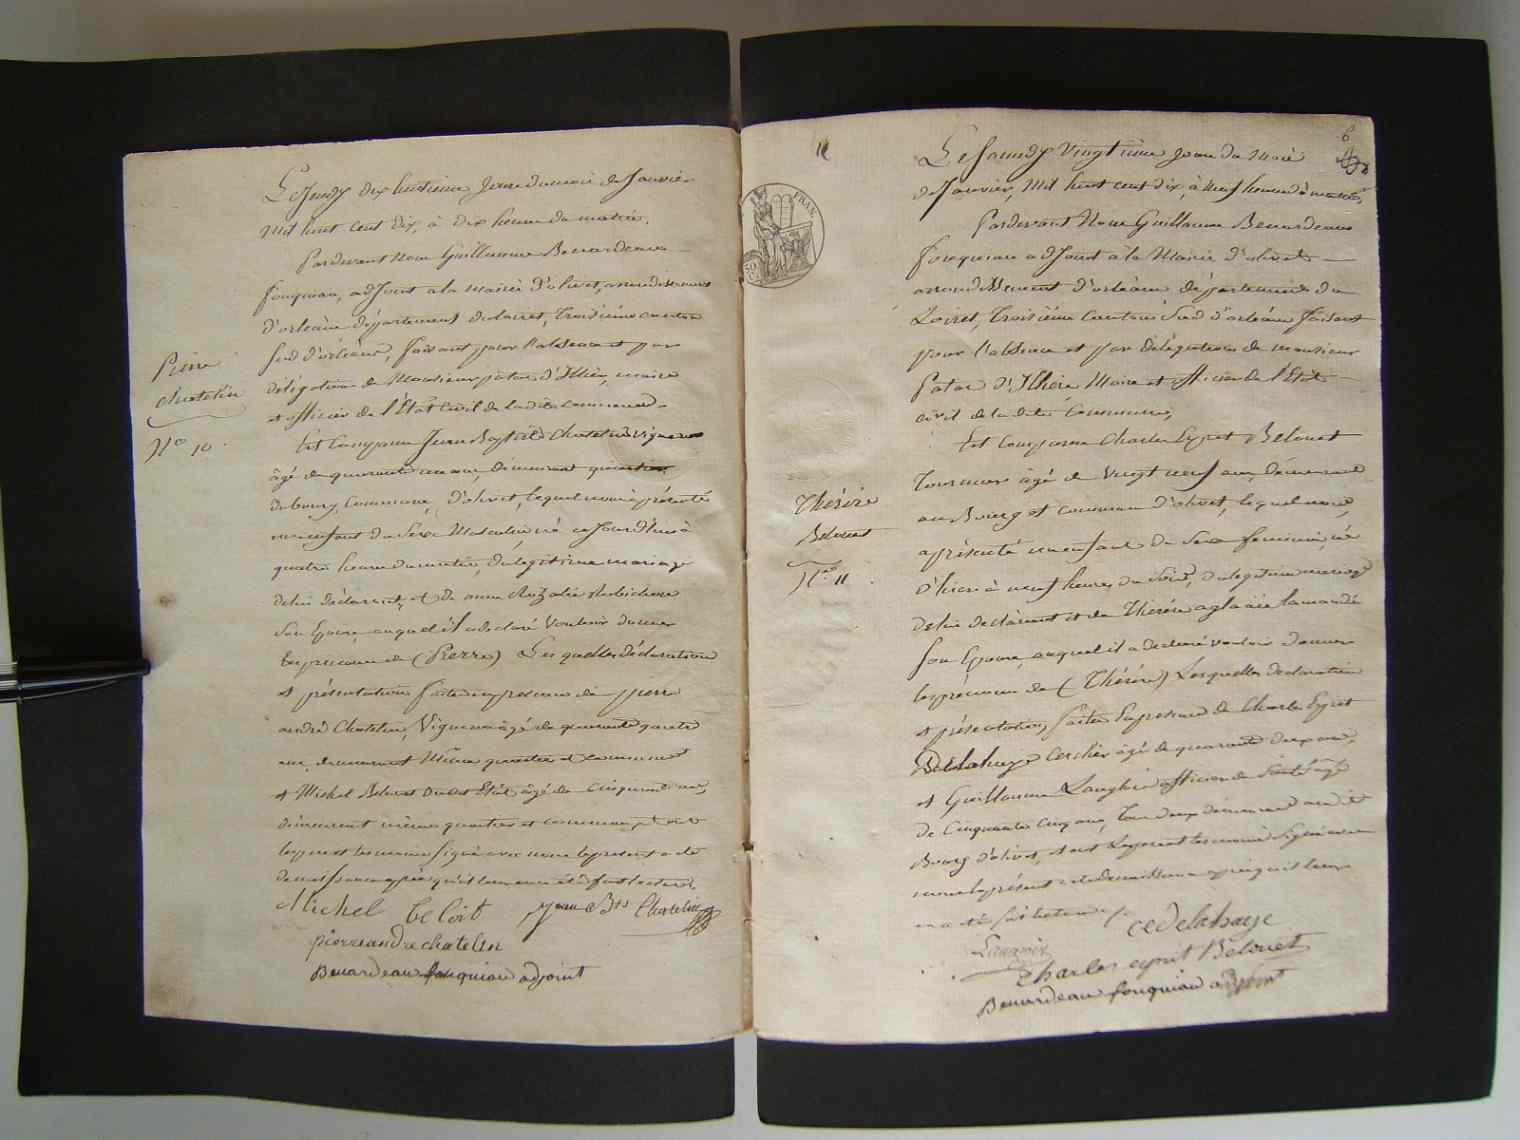 Le Jeudy dix huitieme Jour du mois de Janvier
mil huit cent dix, à dix heure du matin.
Pardevant Nous Guillaume Benardeau
fouquiau, adJoint a la mairie d'olivet, arrondissement
d'orléans département du loiret, troisième canton
sud d'orléans, faisant pour l'absence et par
délégation de Monsieur patas d'Illiers, maire
et officier de l'État Civil de ladite commune
Pierre
chatelin
N° 10
Est Comparu Jean Baptiste Chatelin vigneron
âgé de quarante un ans, demeurant quartier
du bourg, Commune d'olivet, lequel nous a présenté
un enfant du Sexe Masculin né ce Jourd'hui à
quatre heure du matin, de légitime mariage
de lui déclarant, et de anne Rozalie Robichon
Son Epouse, auquel il a déclaré vouloir donner
les prenoms de (Pierre) Les quelles déclaration
et présentation faite en presence de pierre
andré Chatelin, Vigneron âgé de quarante quatre
ans, demeurant Même quartier et commune
et Michel Beloit âgé de Cinquante ans,
demeurant même quartier et commune, et ont
les pere et les temoins signé avec nous le present acte
de naissance après qu'il leur en a été fait lecture.
Michel Beloit Jean Bte Chatelin
pierre andre chatelin
Benardeau fouquiau adjoint
6
11
FRAN
Le samedy Vingtième Jour du Mois
de Janvier, Mil huit cent dix, à Neuf heure du matin,
Pardevant Nous Guillaume Benardeau
fouquiau adJoint à la Mairie d'olivet
arrondissement d'orléans département du
Loiret, troisième Canton Sud d'orléans faisant
pour l'absence et par délégation de monsieur
Patas d'Illiers Maire et officier de l'Etat
civil de la dite Commune,
Est Comparu Charles Cyprit Belouet
Tonnelier âgé de Vingt neuf ans, demeurant
au Bourg et commune d'olivet, lequel nous
Thérèse
Belouet
N° 11
a présenté un enfant du Sexe feminin, né
d'hier à neuf heures du Soir, de légitime mariage
de lui declarant et de Thérèse aglaée
son Epouse, auquel il a declaré vouloir donner
les prénoms de (Thérèse) Lesquelles declaration
et présentation, faites En presence de Charles
Delahaye âgé de quarante deux ans,
et Guillaume officier de Santé âgé
de Cinquante cinq ans, tous deux demeurant audit
Bourg d'olivet, et ont Le pere et les temoins signé avec
nous le présent acte de naissance après qu'il leur
en a été fait lecture
ce Delahaye
Charles cyprit Belouet
Benardeau fouquiau adjoint